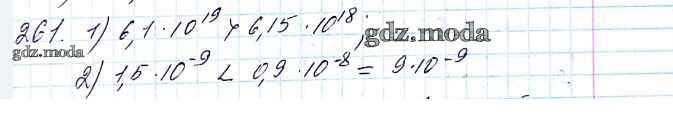 261. 1) 6,1·10¹⁹ > 6,15·10¹⁸; gdz.moda
gdz.moda
2) 1,5·10⁻⁹ < 0,9·10⁻⁸ = 9·10⁻⁹